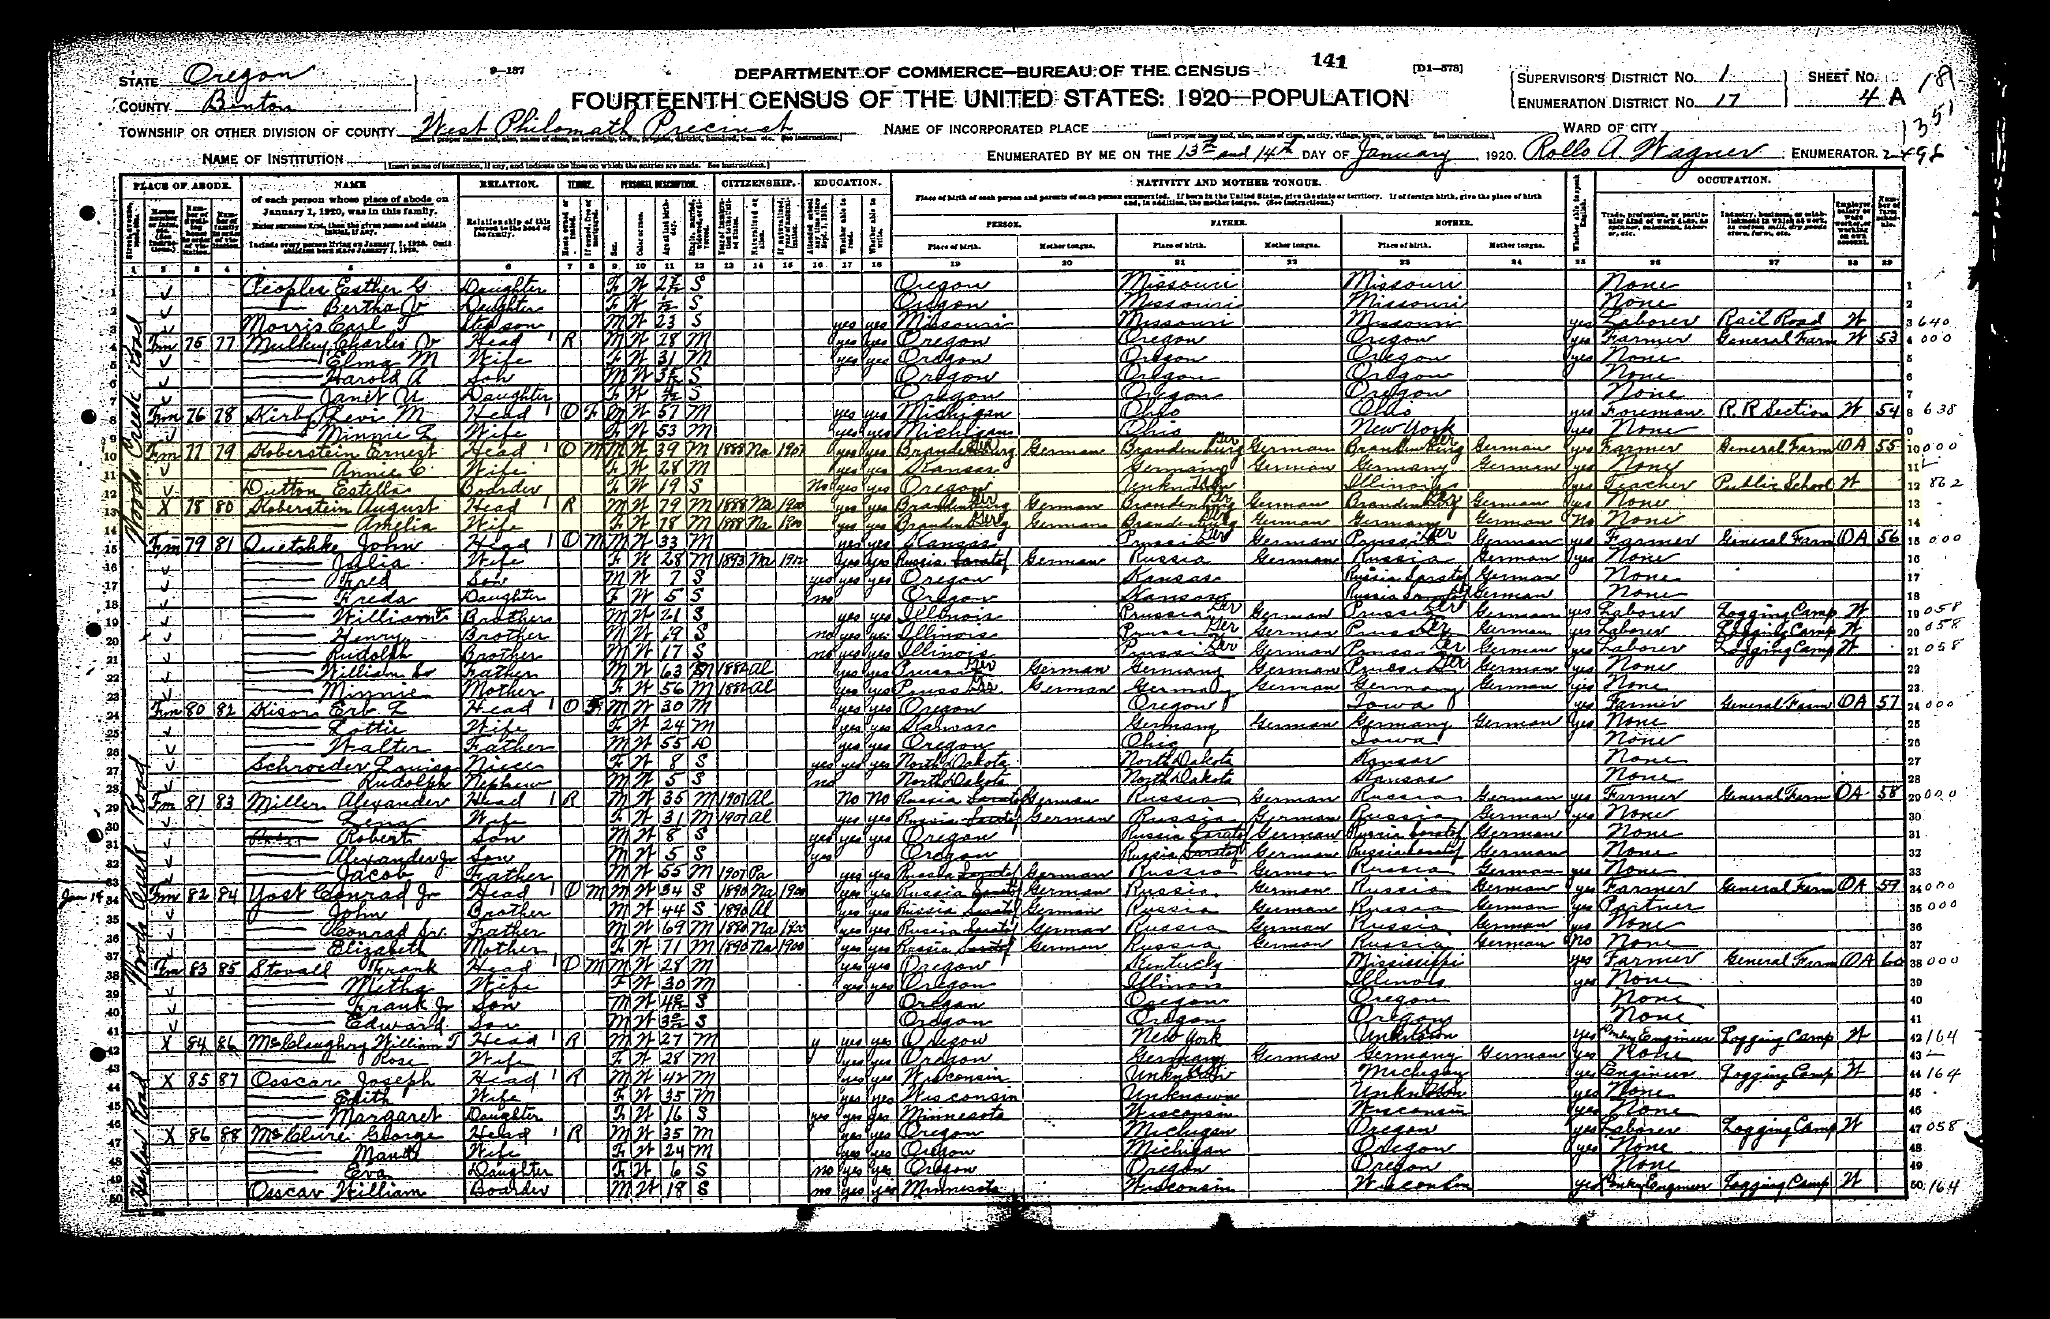 141
STATE Oregon 9-137 DEPARTMENT OF COMMERCE—BUREAU OF THE CENSUS [D1-578] SUPERVISOR'S DISTRICT NO. 1 SHEET NO.
COUNTY Benton FOURTEENTH CENSUS OF THE UNITED STATES: 1920—POPULATION ENUMERATION DISTRICT NO. 17 4 A
TOWNSHIP OR OTHER DIVISION OF COUNTY West Philomath Precinct NAME OF INCORPORATED PLACE WARD OF CITY
NAME OF INSTITUTION ENUMERATED BY ME ON THE 13th and 14th DAY OF January, 1920. Rollo A. Wagner, ENUMERATOR.
PLACE OF ABODE. NAME RELATION. TENURE. PERSONAL DESCRIPTION. CITIZENSHIP. EDUCATION. NATIVITY AND MOTHER TONGUE. OCCUPATION.
of each person whose place of abode on January 1, 1920, was in this family.
PERSON. FATHER. MOTHER.
Place of birth. Mother tongue. Place of birth. Mother tongue. Place of birth. Mother tongue.
1 2 3 4 5 6 7 8 9 10 11 12 13 14 15 16 17 18 19 20 21 22 23 24 25 26 27 28 29
1 Peoples Esther G Daughter F W S Oregon Missouri Missouri None
2 Bertha V Daughter F W S Oregon Missouri Missouri None
3 Morris Earl T Stepson M W 23 S yes yes Missouri Missouri Missouri yes Laborer Rail Road W 640
4 Fm 75 77 Mulkey Charles V Head R M W 28 M yes yes Oregon Oregon Oregon yes Farmer General Farm W 53 000
5 Elma M Wife F W 31 M yes yes Oregon Oregon Oregon yes None
6 Harold A Son M W S Oregon Oregon Oregon None
7 Janet Daughter F W S Oregon Oregon Oregon None
8 Fm 76 78 Kirby Levi M Head O F M W 57 M yes yes Michigan Ohio Ohio yes Foreman R.R Section W 54 638
9 Minnie Wife F W 53 M yes yes Michigan Ohio New York yes None
10 Fm 77 79 Koberstein Ernest Head O M M W 39 M 1888 Na 1901 yes yes Brandenburg Ger German Brandenburg Ger German Brandenburg Ger German yes Farmer General Farm OA 55 000
11 Annie C Wife F W 28 M yes yes Kansas Germany German Germany German yes None
12 Dutton Estella Boarder F W 19 S No yes yes Oregon Unknown Illinois yes Teacher Public School W 862
13 X 78 80 Koberstein August Head R M W 79 M 1888 Na 1900 yes yes Brandenburg Ger German Brandenburg Ger German Brandenburg Ger German yes None
14 Amelia Wife F W 78 M 1888 Na 1900 yes yes Brandenburg Ger German Brandenburg Ger German Germany German No None
15 Fm 79 81 Quetshke John Head O M M W 33 M yes yes Kansas Prussia Ger German Prussia Ger German yes Farmer General Farm OA 56 000
16 Julia Wife F W 28 M 1893 Na yes yes Russia Saratof German Russia German Russia German yes None
17 Fred Son M W 7 S yes yes yes Oregon Kansas Russia Saratof German None
18 Freda Daughter F W 5 S no Oregon Kansas Russia Saratof German None
19 William F. Brother M W 21 S yes yes Illinois Prussia Ger German Prussia Ger German yes Laborer Logging Camp W 058
20 Henry Brother M W 19 S no yes yes Illinois Prussia Ger German Prussia Ger German yes Laborer Logging Camp W 058
21 Rudolph Brother M W 17 S no yes yes Illinois Prussia Ger German Prussia Ger German yes Laborer Logging Camp W 058
22 William Father M W 63 M 1884 Al yes yes Prussia Ger German Germany German Prussia Ger German yes None
23 Minnie Mother F W 56 M 1884 Al yes yes Prussia Ger German Germany German Germany German yes None
24 Fm 80 82 Kisor Head O F M W 30 M yes yes Oregon Oregon Iowa yes Farmer General Farm OA 57 000
25 Lottie Wife F W 24 M yes yes Kansas Germany German Germany German yes None
26 Walter Father M W 55 D yes yes Oregon Ohio Iowa None
27 Schroeder Louisa Niece F W 8 S yes yes yes North Dakota North Dakota Kansas None
28 Rudolph Nephew M W 5 S no North Dakota North Dakota Kansas None
29 Fm 81 83 Miller Alexander Head R M W 35 M 1907 Al No No Russia Saratof German Russia German Russia German yes Farmer General Farm OA 58 000
30 Lena Wife F W 31 M 1901 Al yes yes Russia Saratof German Russia German Russia German yes None
31 Robert Son M W 8 S yes yes yes Oregon Russia Saratof German Russia Saratof German None
32 Alexander Jr Son M W 5 S yes Oregon Russia Saratof German Russia Saratof German None
33 Jacob Father M W 55 M 1907 Pa yes yes Russia Saratof German Russia German Russia German yes None
34 Jan 14 Fm 82 84 Yost Conrad Jr Head O M M W 34 S 1890 Na 1900 yes yes Russia Saratof German Russia German Russia German yes Farmer General Farm OA 59 000
35 John Brother M W 44 S 1890 Al yes yes Russia Saratof German Russia German Russia German yes Partner 000
36 Conrad Sr. Father M W 69 M 1890 Na 1900 yes yes Russia Saratof German Russia German Russia German yes None
37 Elizabeth Mother F W 71 M 1890 Na 1900 yes yes Russia Saratof German Russia German Russia German No None
38 Fm 83 85 Stovall Frank Head O M M W 28 M yes yes Oregon Kentucky Mississippi yes Farmer General Farm OA 60 000
39 Wife F W 30 M yes yes Oregon Illinois Illinois yes None
40 Frank Jr Son M W S Oregon Oregon Oregon None
41 Edward Son M W S Oregon Oregon Oregon None
42 X 84 86 McClaughry William T Head R M W 27 M yes yes Oregon New York Unknown yes Donkey Engineer Logging Camp W 164
43 Rose Wife F W 28 M yes yes Oregon Germany German Germany German yes None
44 X 85 87 Osscar Joseph Head R M W 42 M yes yes Wisconsin Unknown Michigan yes Engineer Logging Camp W 164
45 Edith Wife F W 35 M yes yes Wisconsin Unknown Unknown yes None
46 Margaret Daughter F W 16 S yes yes yes Minnesota Wisconsin Wisconsin yes None
47 X 86 88 McClure George Head R M W 35 M yes yes Oregon Michigan Oregon yes Laborer Logging Camp W 058
48 Maud Wife F W 24 M yes yes Oregon Michigan Oregon yes None
49 Eva Daughter F W 6 S no yes yes Oregon Oregon Oregon None
50 Osscar William Boarder M W 18 S no yes yes Minnesota Wisconsin Wisconsin yes Donkey Engineer Logging Camp W 164
Woods Creek Road
Woods Creek Road